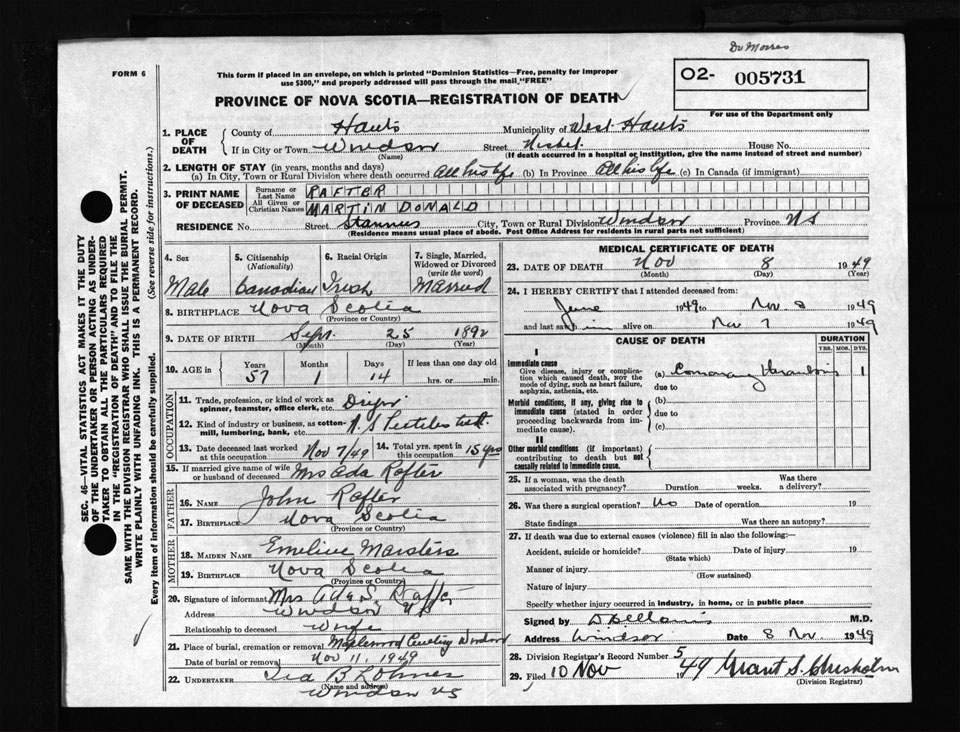 Dr Morris
FORM 6
This form if placed in an envelope, on which is printed "Dominion Statistics—Free, penalty for improper
use $300," and properly addressed will pass through the mail "FREE"
O2- 005731
For use of the Department only
PROVINCE OF NOVA SCOTIA—REGISTRATION OF DEATH
SEC. 46—VITAL STATISTICS ACT MAKES IT THE DUTY
OF THE UNDERTAKER OR PERSON ACTING AS UNDER-
TAKER TO OBTAIN ALL THE PARTICULARS REQUIRED
IN THE "REGISTRATION OF DEATH" AND TO FILE THE
SAME WITH THE DIVISION REGISTRAR WHO SHALL ISSUE THE BURIAL PERMIT.
WRITE PLAINLY WITH UNFADING INK. THIS IS A PERMANENT RECORD.
Every item of information should be carefully supplied. (See reverse side for instructions.)
1. PLACE OF DEATH
County of Hants Municipality of West Hants
If in City or Town Windsor Street House No.
(Name) (If death occurred in a hospital or institution, give the name instead of street and number)
2. LENGTH OF STAY (in years, months and days)
(a) In City, Town or Rural Division where death occurred All his life (b) In Province All his life (c) In Canada (if immigrant)
3. PRINT NAME OF DECEASED
Surname or Last Name RAFTER
All Given or Christian Names MARTIN DONALD
RESIDENCE No. Street Stannus City, Town or Rural Division Windsor Province N S
(Residence means usual place of abode. Post Office Address for residents in rural parts not sufficient)
4. Sex 5. Citizenship (Nationality) 6. Racial Origin 7. Single, Married, Widowed or Divorced (write the word)
Male Canadian Irish Married
8. BIRTHPLACE Nova Scotia
(Province or Country)
9. DATE OF BIRTH Sept. 25 1892
(Month) (Day) (Year)
10. AGE in Years Months Days If less than one day old
57 1 14 hrs. or min.
OCCUPATION
11. Trade, profession, or kind of work as
spinner, teamster, office clerk, etc.
12. Kind of industry or business, as cotton-
mill, lumbering, bank, etc. N.S. Textiles Ltd.
13. Date deceased last worked at this occupation Nov 7/49 14. Total yrs. spent in this occupation 15 yrs
15. If married give name of wife
or husband of deceased Mrs Ada Rafter
FATHER
16. NAME John Rafter
17. BIRTHPLACE Nova Scotia
(Province or Country)
MOTHER
18. MAIDEN NAME Emeline Marsters
19. BIRTHPLACE Nova Scotia
(Province or Country)
20. Signature of informant Mrs Ada S. Rafter
Address Windsor N S
Relationship to deceased Wife
21. Place of burial, cremation or removal Maplewood Cemetery Windsor
Date of burial or removal Nov 11, 1949
22. UNDERTAKER Ira B Lohnes
(Name and address)
Windsor NS
MEDICAL CERTIFICATE OF DEATH
23. DATE OF DEATH Nov 8 1949
(Month) (Day) (Year)
24. I HEREBY CERTIFY that I attended deceased from:
June 1949 to Nov. 8 1949
and last saw him alive on Nov 7 1949
CAUSE OF DEATH DURATION
YRS. MOS. DYS.
I
Immediate cause
Give disease, injury or complica-
tion which caused death, not the
mode of dying, such as heart failure,
asphyxia, asthenia, etc.
(a) Coronary Thrombosis 1
due to
Morbid conditions, if any, giving rise to
immediate cause (stated in order
proceeding backwards from im-
mediate cause).
(b)
due to
(c)
II
Other morbid conditions (if important)
contributing to death but not
causally related to immediate cause.
25. If a woman, was the death Was there
associated with pregnancy? Duration weeks. a delivery?
26. Was there a surgical operation? No Date of operation 19
State findings Was there an autopsy?
27. If death was due to external causes (violence) fill in also the following:—
Accident, suicide or homicide? Date of injury 19
(State which)
Manner of injury
(How sustained)
Nature of injury
Specify whether injury occurred in industry, in home, or in public place
Signed by M.D.
Address Windsor Date 8 Nov. 1949
28. Division Registrar's Record Number 5
29. Filed 10 Nov 1949 Grant S. Chisholm
(Division Registrar)